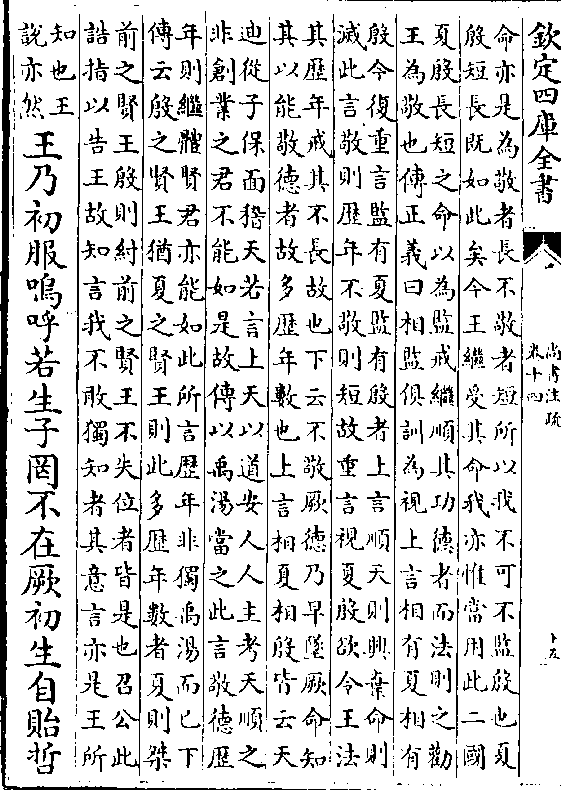 欽定四庫全書
尚書注疏
卷十四
十五
命亦是為敬者長不敬者短所以我不可不監殷也夏
殷短長既如此矣今王繼受其命我亦惟當用此二國
夏殷長短之命以為監戒繼順其功德者而法則之勸
王為敬也傳正義曰相監俱訓為視上言相有夏相有
殷今復重言監有夏監有殷者上言順天則興棄命則
滅此言敬則歷年不敬則短故重言視夏殷欲令王法
其歷年戒其不長故也下云不敬厥德乃早墜厥命知
其以能敬德者故多歷年數也上言相夏相殷皆云天
迪從子保面稽天若言上天以道安人人主考天順之
非創業之君不能如是故傳以禹湯當之此言敬德歷
年則繼體賢君亦能如此所言歷年非獨禹湯而已下
傳云殷之賢王猶夏之賢王則此多歷年數者夏則桀
前之賢王殷則紂前之賢王不失位者皆是也召公此
誥指以告王故知言我不敢獨知者其意言亦是王所
知也王
說亦然
王乃初服嗚呼若生子罔不在厥初生自貽哲